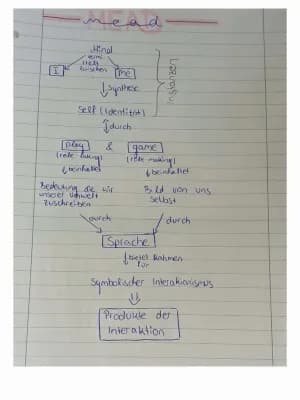 mead
Mind
vermittelt
zwischen
I
me
Synthese
Instanzen
Self (Identität)
durch
play & game
(role taking) (role making)
beinhaltet beinhaltet
Bedeutung die wir Bild von uns
unserer Umwelt selbst
zuschreiben
durch durch
Sprache
bietet Rahmen
für
Symbolischer Interaktionismus
Produkte der
Interaktion